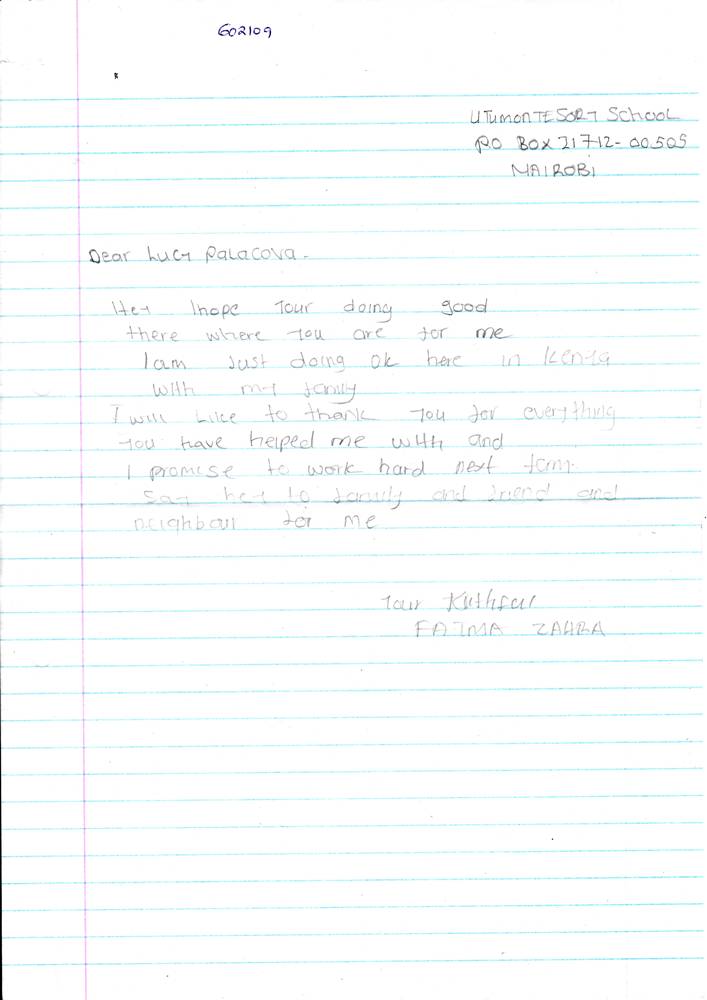 602109
UTUMONTESORY School
PO BOX 21712-00505
NAIROBI
Dear Lucy Palacova.
Hey I hope your doing good
there where you are for me
I am Just doing ok here in Kenya
with my family
I will Like to thank you for everything
you have helped me with and
I promise to work hard next term.
Say hey to family and friend and
neighbour for me
Your
FATMA ZAHRA